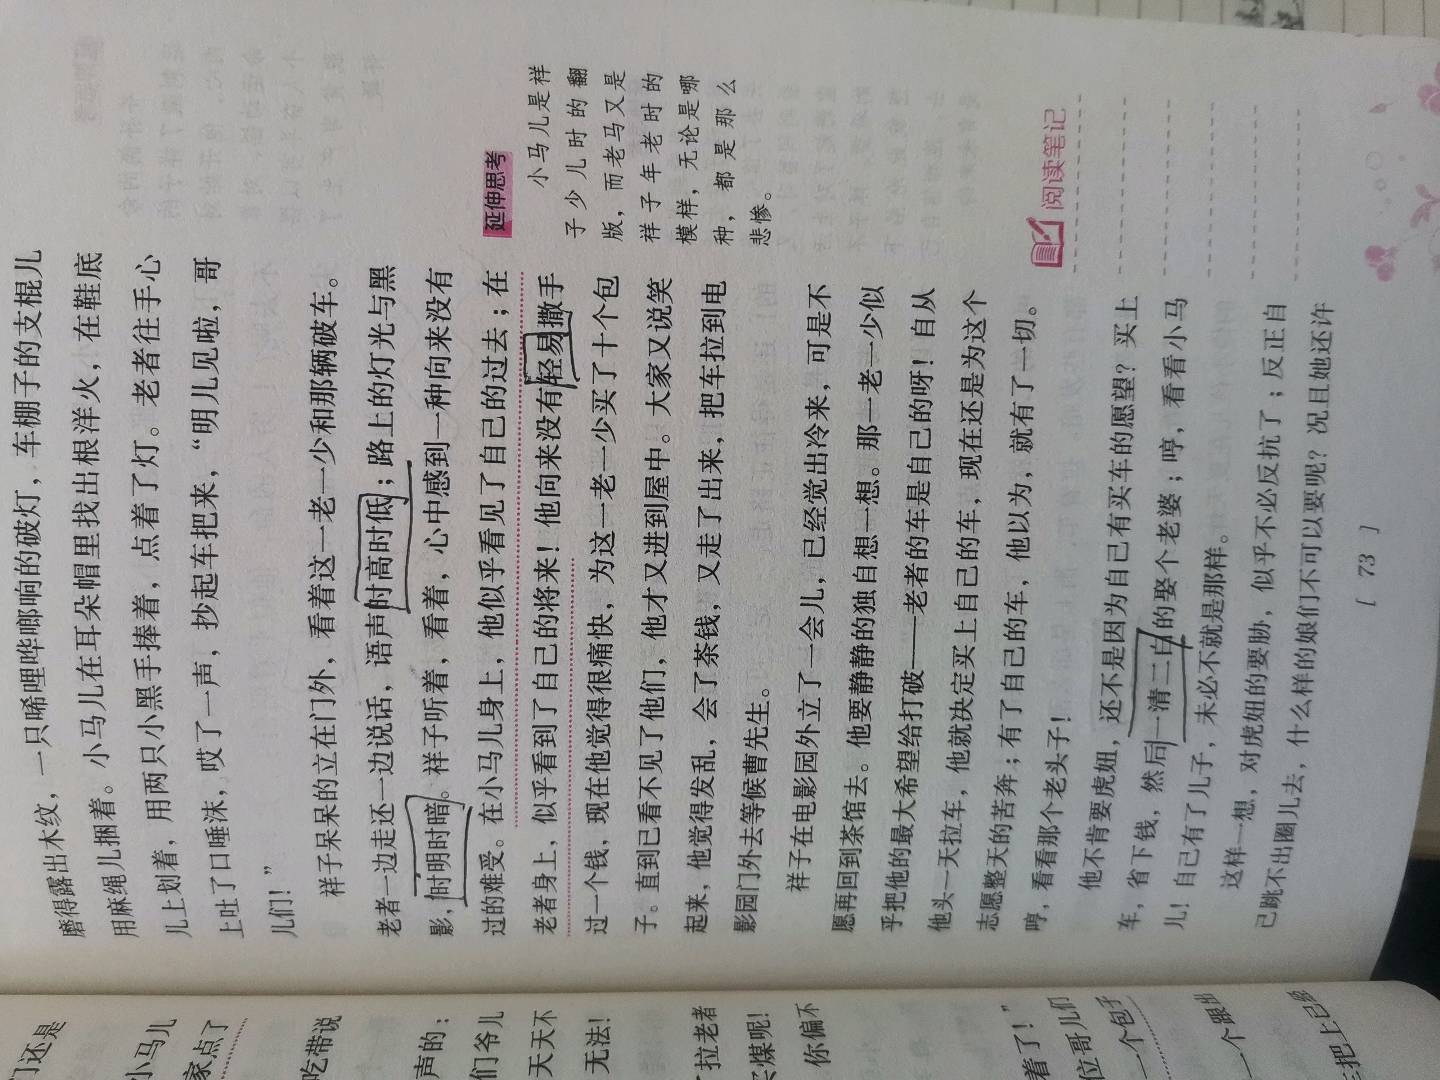 磨得露出木纹，一只唏哩哗啷响的破灯，车棚子的支棍儿
用麻绳儿捆着。小马儿在耳朵帽里找出根洋火，在鞋底
儿上划着，用两只小黑手捧着，点着了灯。老者往手心
上吐了口唾沫，哎了一声，抄起车把来，“明儿见啦，哥
儿们！”
祥子呆呆的立在门外，看着这一老一少和那辆破车。
老者一边走还一边说话，语声时高时低；路上的灯光与黑
影，时明时暗。祥子听着，看着，心中感到一种向来没有
过的难受。在小马儿身上，他似乎看见了自己的过去；在
老者身上，似乎看到了自己的将来！他向来没有轻易撒手
过一个钱，现在他觉得很痛快，为这一老一少买了十个包
子。直到已看不见了他们，他才又进到屋中。大家又说笑
起来，他觉得发乱，会了茶钱，又走了出来，把车拉到电
影园门外去等候曹先生。
祥子在电影园外立了一会儿，已经觉出冷来，可是不
愿再回到茶馆去。他要静静的独自想一想。那一老一少似
乎把他的最大希望给打破——老者的车是自己的呀！自从
他头一天拉车，他就决定买上自己的车，现在还是为这个
志愿整天的苦奔；有了自己的车，他以为，就有了一切。
哼，看看那个老头子！
他不肯要虎妞，还不是因为自己有买车的愿望？买上
车，省下钱，然后一清二白的娶个老婆；哼，看看小马
儿！自己有了儿子，未必不就是那样。
这样一想，对虎妞的要胁，似乎不必反抗了；反正自
己跳不出圈儿去，什么样的娘们不可以要呢？况且她还许
延伸思考
小马儿是祥
子少儿时的翻
版，而老马又是
祥子年老时的
模样，无论是哪
种，都是那么
悲惨。
阅读笔记
[ 73 ]
门还是
小马儿
家点了
吃带说
声的：
们爷儿
天天不
无法！
拉老者
煤呢！
你偏不
着了！”
位哥儿们
一个包子